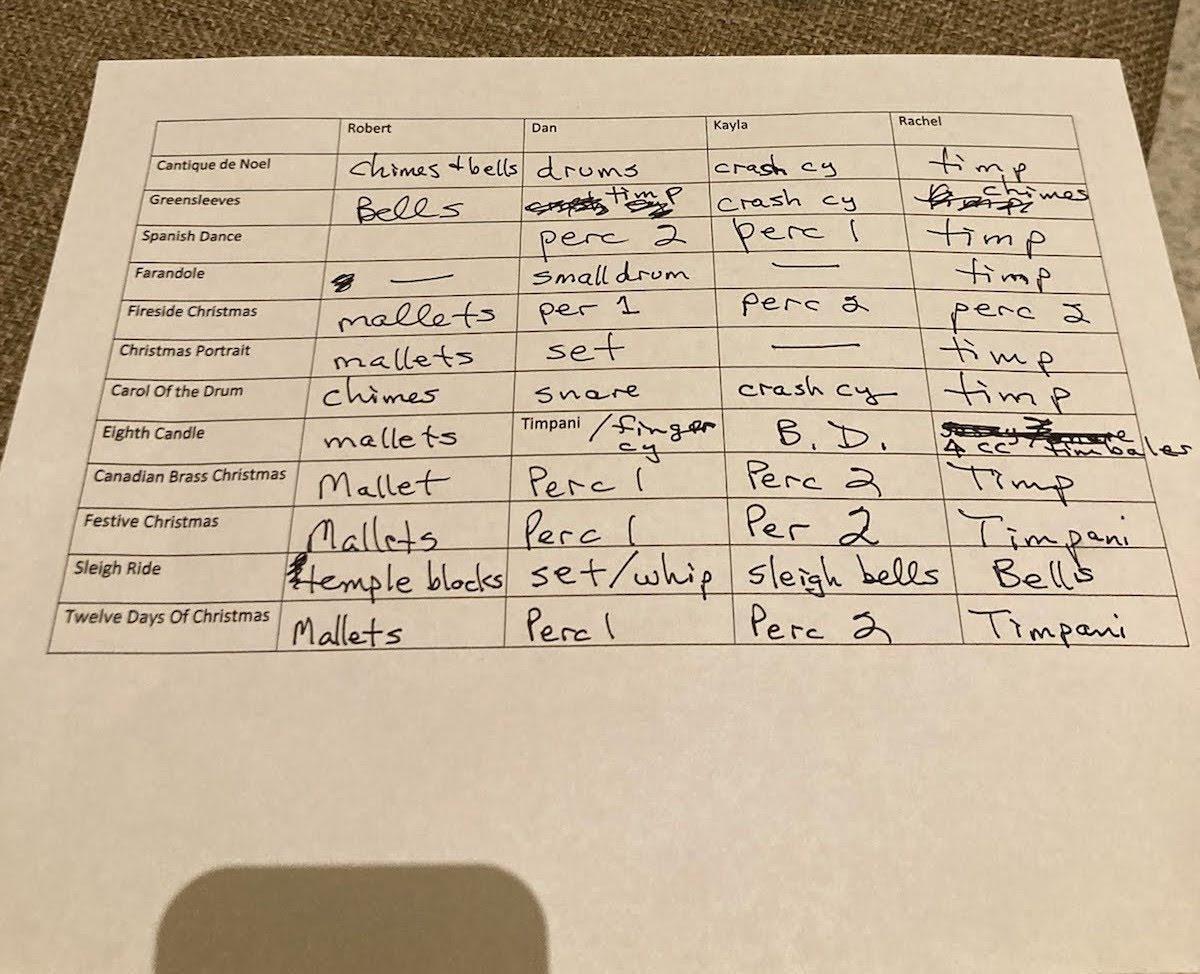 Robert Dan Kayla Rachel
Cantique de Noel chimes + bells drums crash cy timp
Greensleeves Bells timp crash cy chimes
Spanish Dance perc 2 perc 1 timp
Farandole — small drum — timp
Fireside Christmas mallets per 1 perc 2 perc 2
Christmas Portrait mallets set — timp
Carol Of the Drum chimes snare crash cy timp
Eighth Candle mallets Timpani / finger B. D.
cy cc timbales
Canadian Brass Christmas Mallet Perc 1 Perc 2 Timp
Festive Christmas Mallets Perc 1 Per 2 Timpani
Sleigh Ride temple blocks set/whip sleigh bells Bells
Twelve Days Of Christmas Mallets Perc 1 Perc 2 Timpani